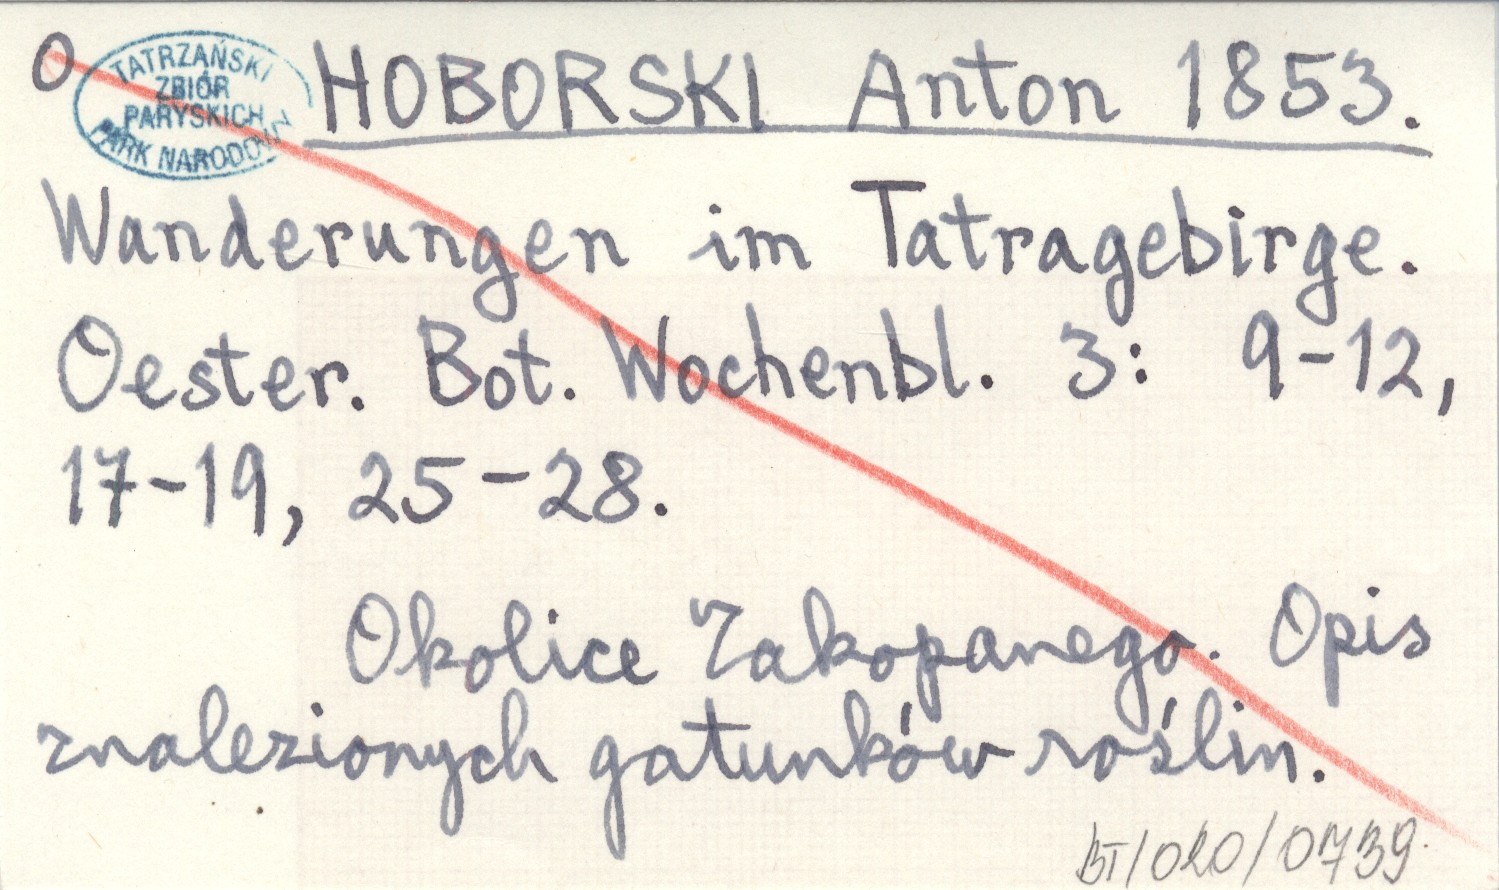 O
TATRZAŃSKI
ZBIÓR
PARYSKICH
PARK NARODOWY
HOBORSKI Anton 1853.
Wanderungen im Tatragebirge.
Oester. Bot. Wochenbl. 3: 9-12,
17-19, 25-28.
Okolice Zakopanego. Opis
znalezionych gatunków roślin.
BT/020/0739